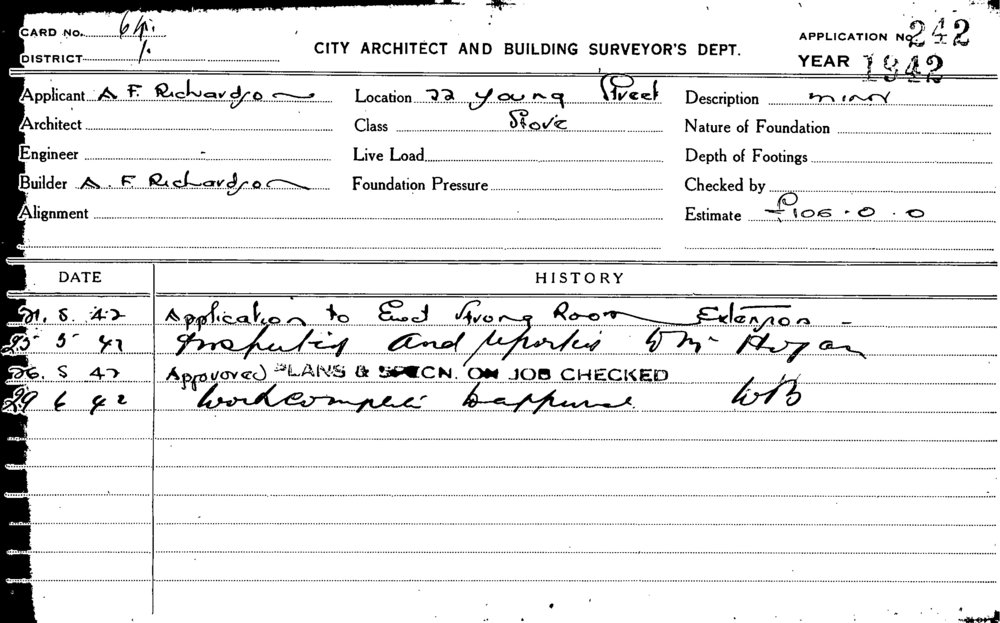 CARD NO. 64.
APPLICATION No. 242
DISTRICT 1.
CITY ARCHITECT AND BUILDING SURVEYOR'S DEPT.
YEAR 1942
Applicant A F. Richardson Location 22 Young Street Description minor
Architect Class Store Nature of Foundation
Engineer - Live Load Depth of Footings
Builder A. F. Richardson Foundation Pressure Checked by
Alignment Estimate £106.0.0
DATE HISTORY
21. 5. 42 Application to Erect Strong Room Extension -
25 5 42 Inspected and reported Wm Hogan
26. 5 42 Approved PLANS & SPECN. ON JOB CHECKED
29 6 42 Work complete WB